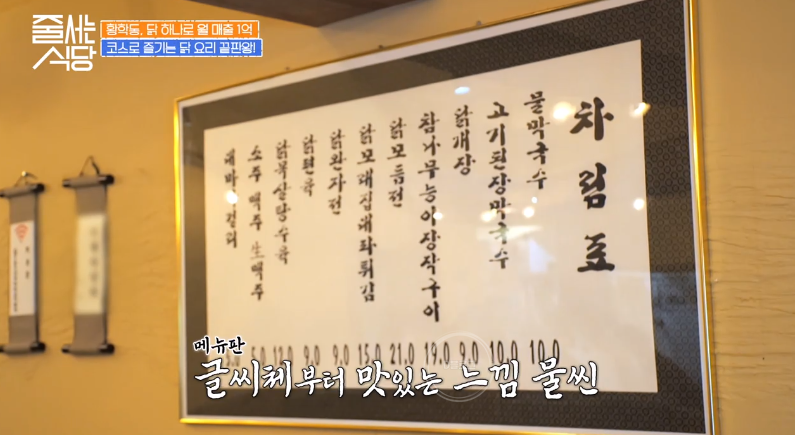 줄서는
식당
황학동, 닭 하나로 월 매출 1억
코스로 즐기는 닭 요리 끝판왕!
차림표
물막국수 10.0
고기된장막국수 10.0
닭개장 9.0
참나무능이장작구이 19.0
닭모듬전 21.0
닭모래집대파튀김 15.0
닭완자전 9.0
닭편육 9.0
닭목살탕수육
소주 맥주 生맥주 5.0
대박막걸리
메뉴판
글씨체부터 맛있는 느낌 물씬